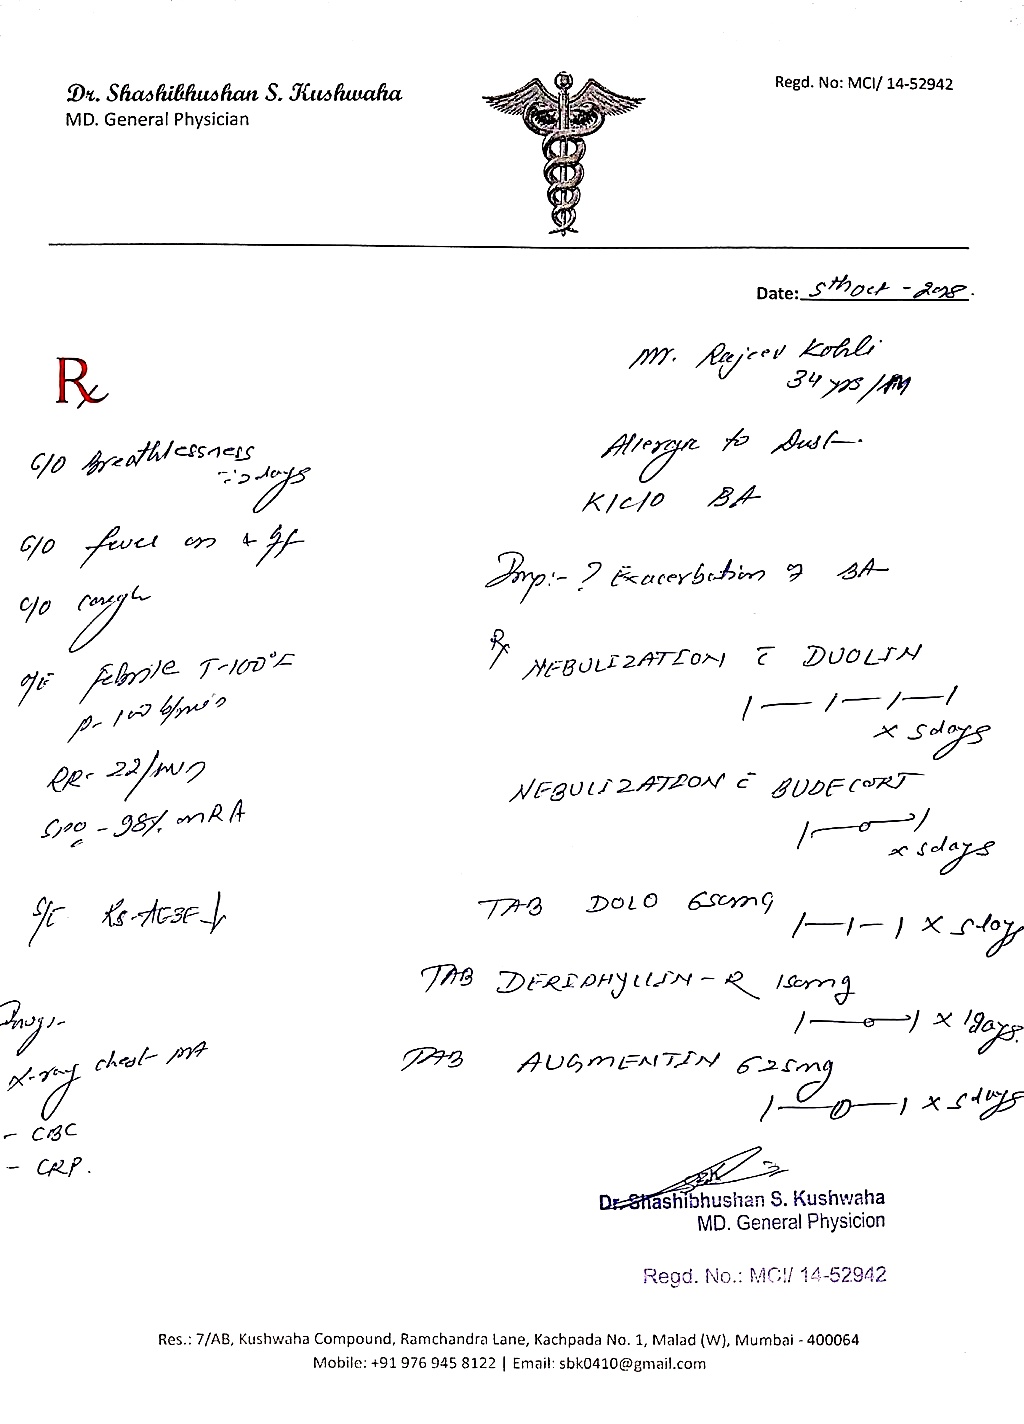 Dr. Shashibhushan S. Kushwaha
MD. General Physician
Regd. No: MCI/ 14-52942
Date: 5th Oct - 2018.
Mr. Rajeev Kohli
34 yrs / M
Rx
C/O Breathlessness
2 days
C/O fever on & off
C/O cough
O/E Febrile T-100°F
P- 100 b/min
RR- 22/min
SPO2 - 98% on RA
S/E RS-AEBE ↓
X-ray chest PA
- CBC
- CRP.
Allergic to Dust.
K/C/O BA
Imp:- ? Exacerbation of BA
Rx
NEBULIZATION c̄ DUOLIN
1 — 1 — 1 — 1
x 5 days
NEBULIZATION c̄ BUDECORT
1 — 0 — 1
x 5 days
TAB DOLO 650mg
1 — 1 — 1 x 5 days
TAB DERIPHYLLIN - R 150mg
1 — 0 — 1 x days.
TAB AUGMENTIN 625mg
1 — 0 — 1 x 5 days
Dr. Shashibhushan S. Kushwaha
MD. General Physicion
Regd. No.: MCI/ 14-52942
Res.: 7/AB, Kushwaha Compound, Ramchandra Lane, Kachpada No. 1, Malad (W), Mumbai - 400064
Mobile: +91 976 945 8122 | Email: sbk0410@gmail.com